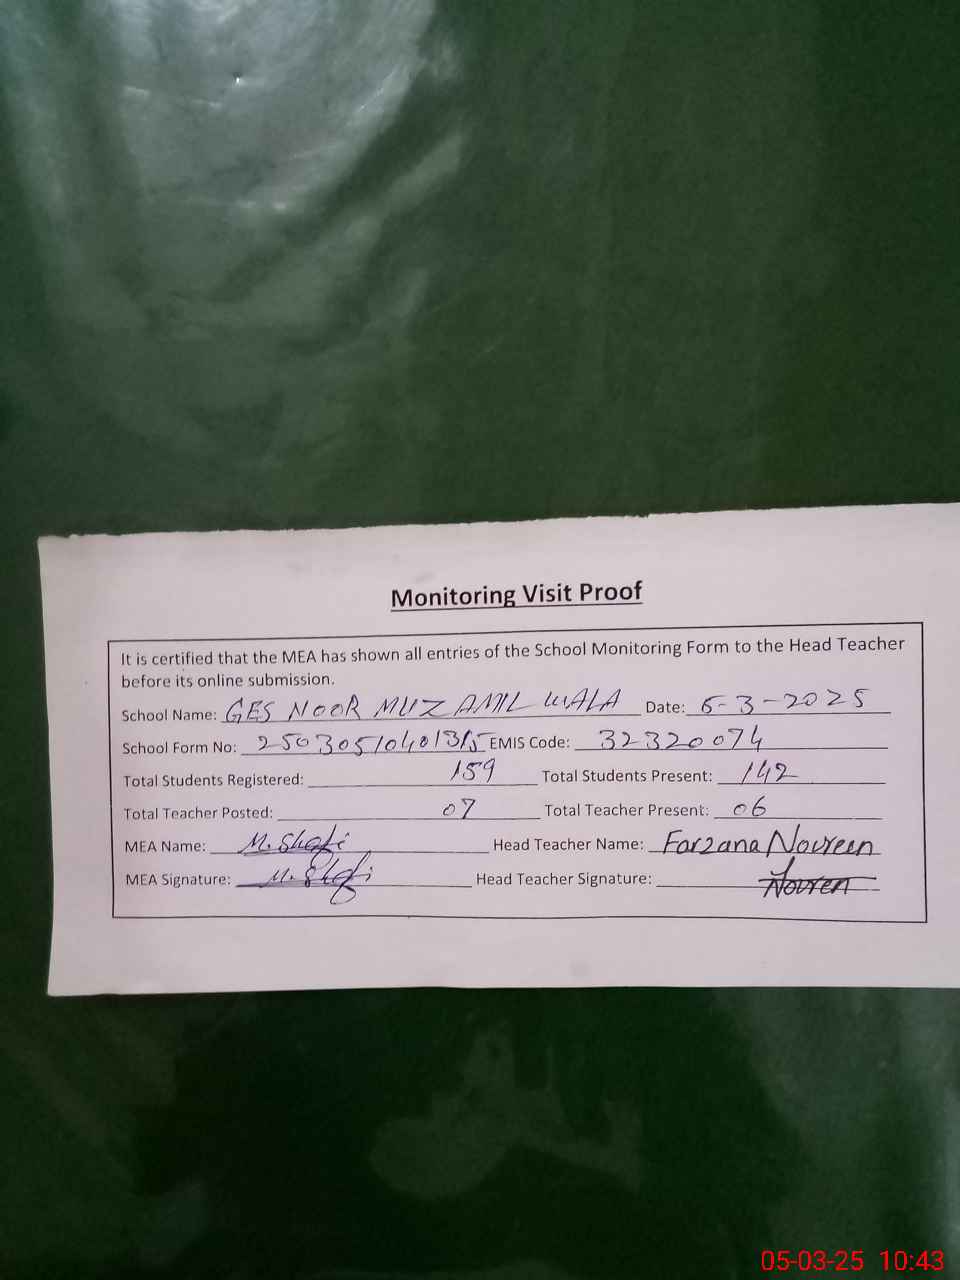 Monitoring Visit Proof
It is certified that the MEA has shown all entries of the School Monitoring Form to the Head Teacher
before its online submission.
School Name: GES NOOR MUZAMIL WALA Date: 5-3-2025
School Form No: EMIS Code: 32320074
Total Students Registered: 159 Total Students Present: 142
Total Teacher Posted: 07 Total Teacher Present: 06
MEA Name: M. Shafi Head Teacher Name: Farzana Novreen
MEA Signature: M. Shafi Head Teacher Signature: Novren
05-03-25 10:43